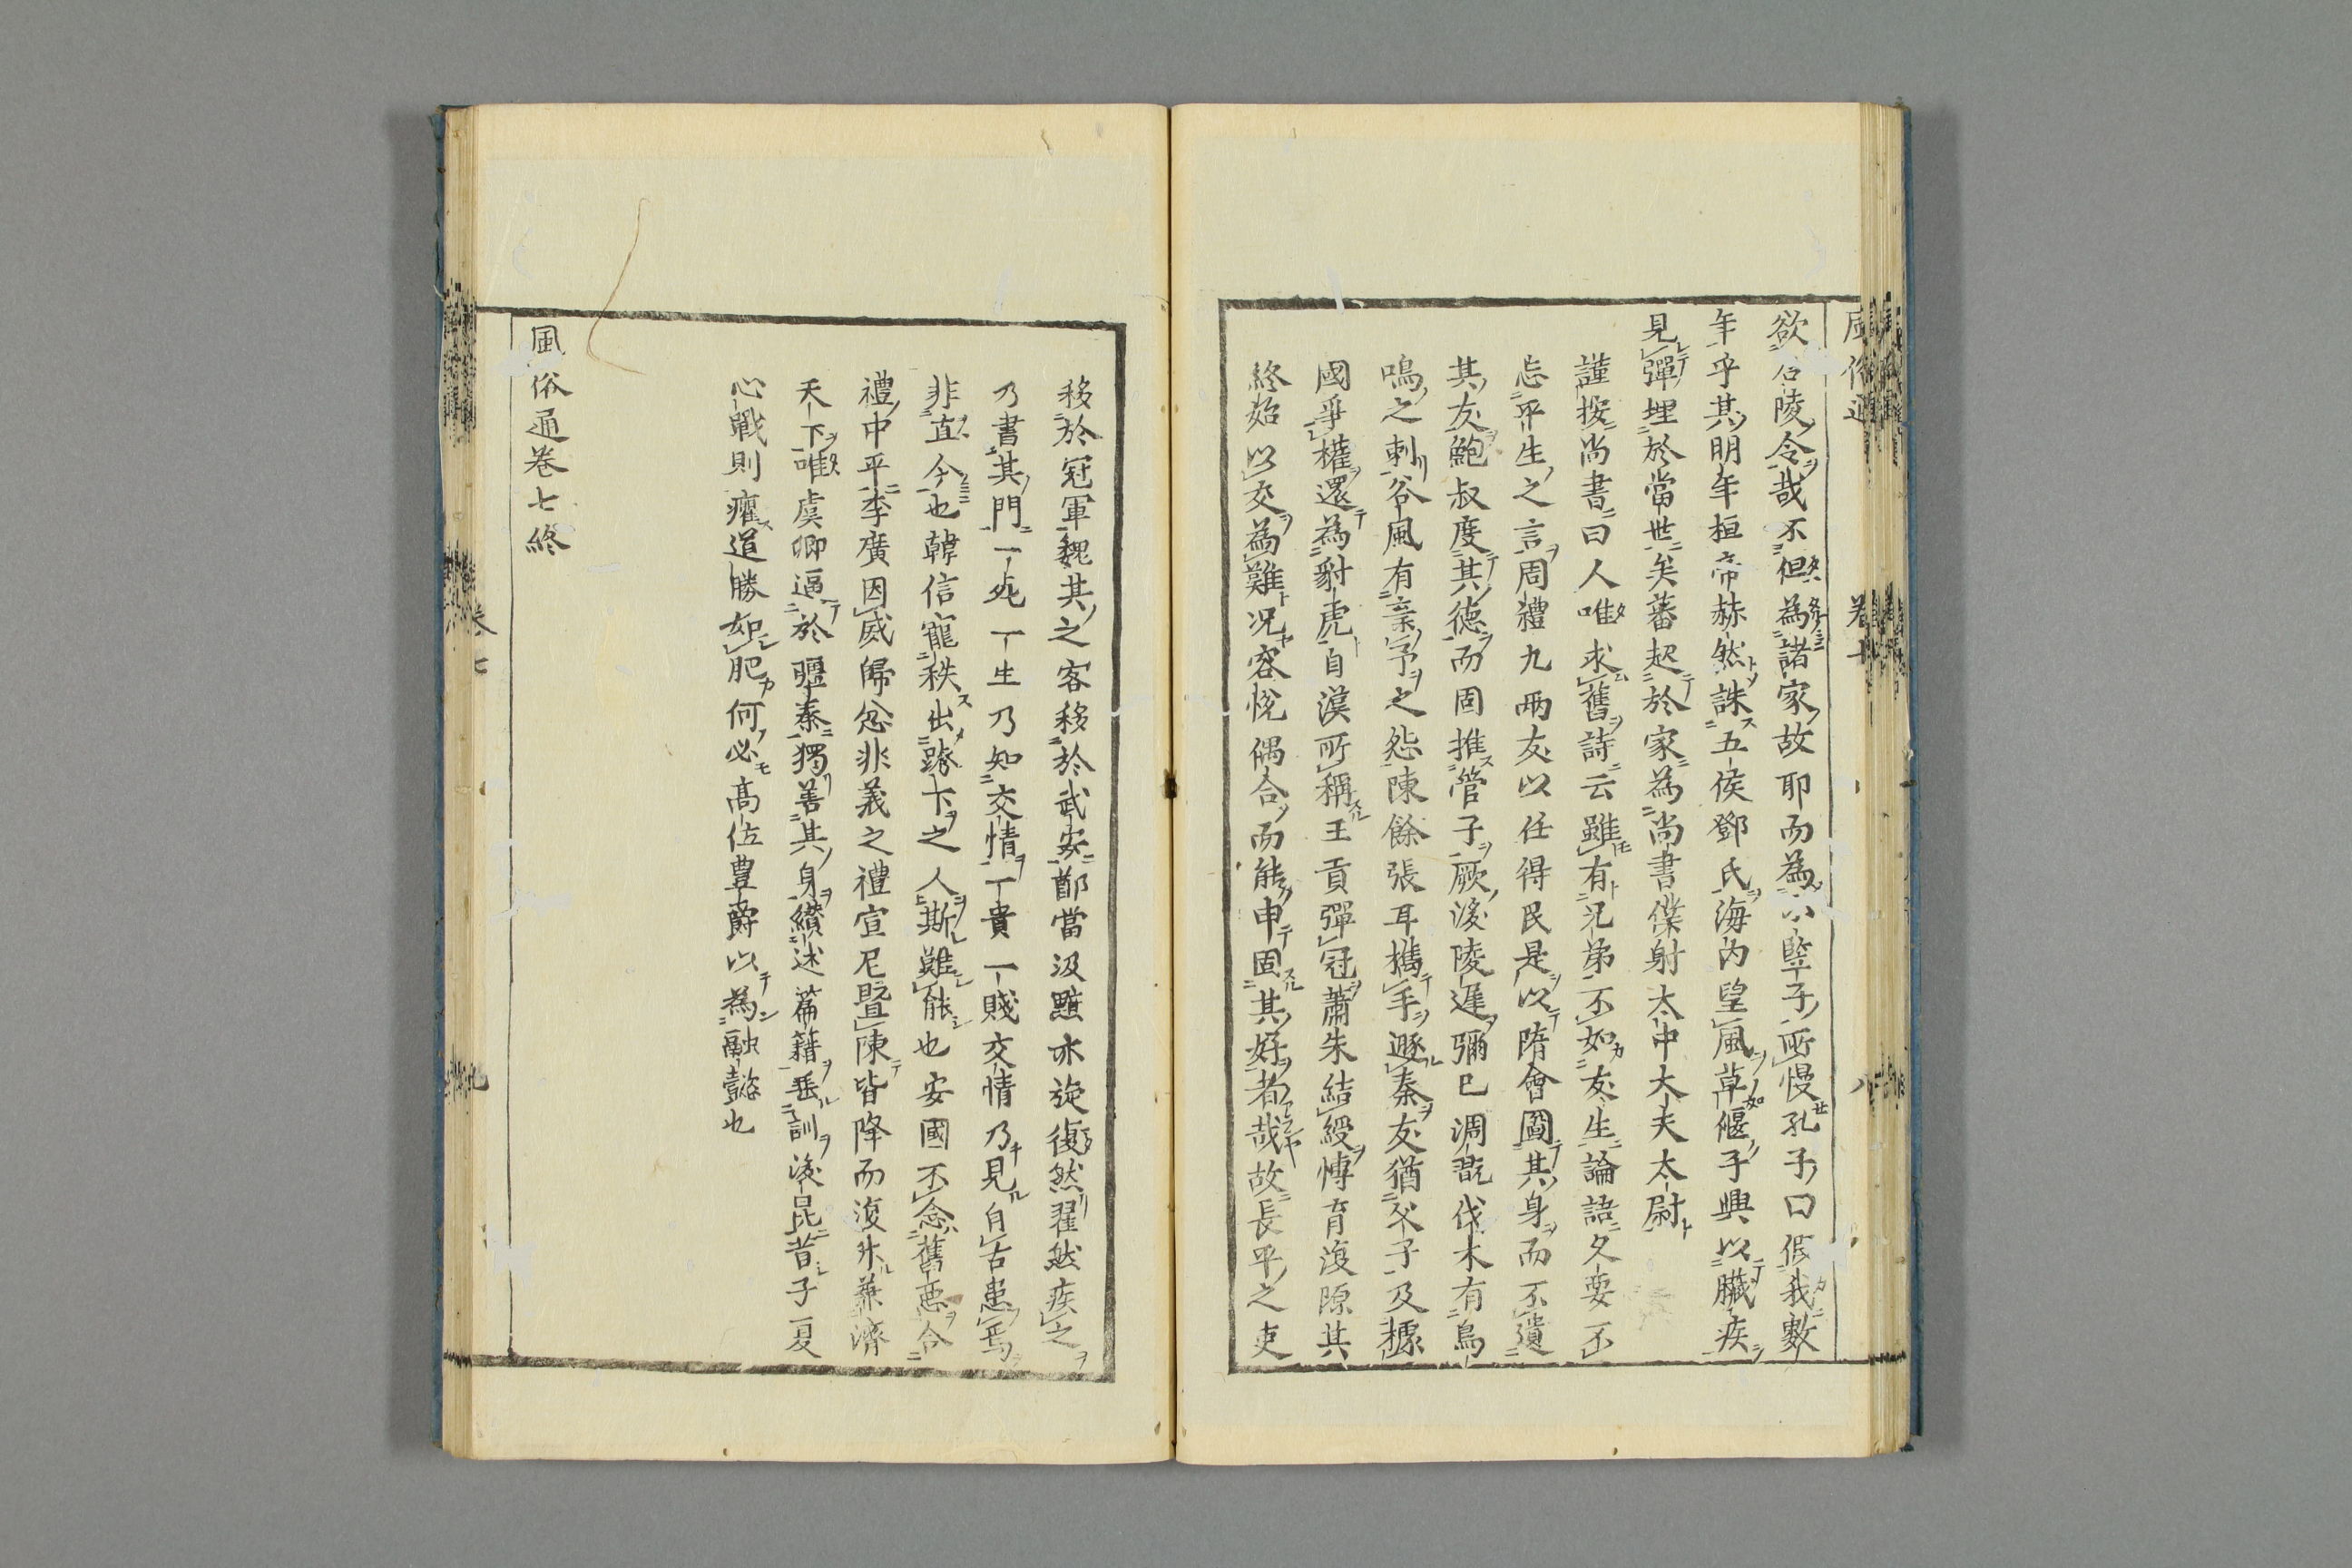 欲召陵令哉不但為諸家故耶而為小豎子所慢孔子曰假我數
年乎其明年桓帝赫然誅五侯鄧氏海内望風草偃子興以臟疾
見彈埋於當世矣蕃起於家為尚書僕射太中大夫太尉
謹按尚書曰人唯求舊詩云雖有兄弟不如友生論語久要不
忘平生之言周禮九兩友以任得民是以隋會圖其身而不遺
其友鮑叔度其德而固推管子厥後陵遲彌已凋翫伐木有鳥
鳴之刺谷風有棄予之怨陳餘張耳携手遯秦友猶父子及據
國爭權還為豺虎自漢所稱王貢彈冠蕭朱結綬慱育復隙其
終始以交為難况容悅偶合而能申固其好者哉故長平之吏
移於冠軍魏其之客移於武安鄭當汲黯亦旋復然翟然疾之
乃書其門一死一生乃知交情一貴一賤交情乃見自古患焉
非直今也韓信寵秩出跨下之人斯難能也安國不念舊惡合
禮中平李廣因威歸忿非義之禮宣尼暨陳皆降而復升兼濟
天下唯虞卿逼於疆秦獨善其身纘述篇籍垂訓後昆昔子夏
心戰則癯道勝如肥何必高位豊爵以為融懿也
風俗通卷七終
風俗通
卷七
八
卷七
九